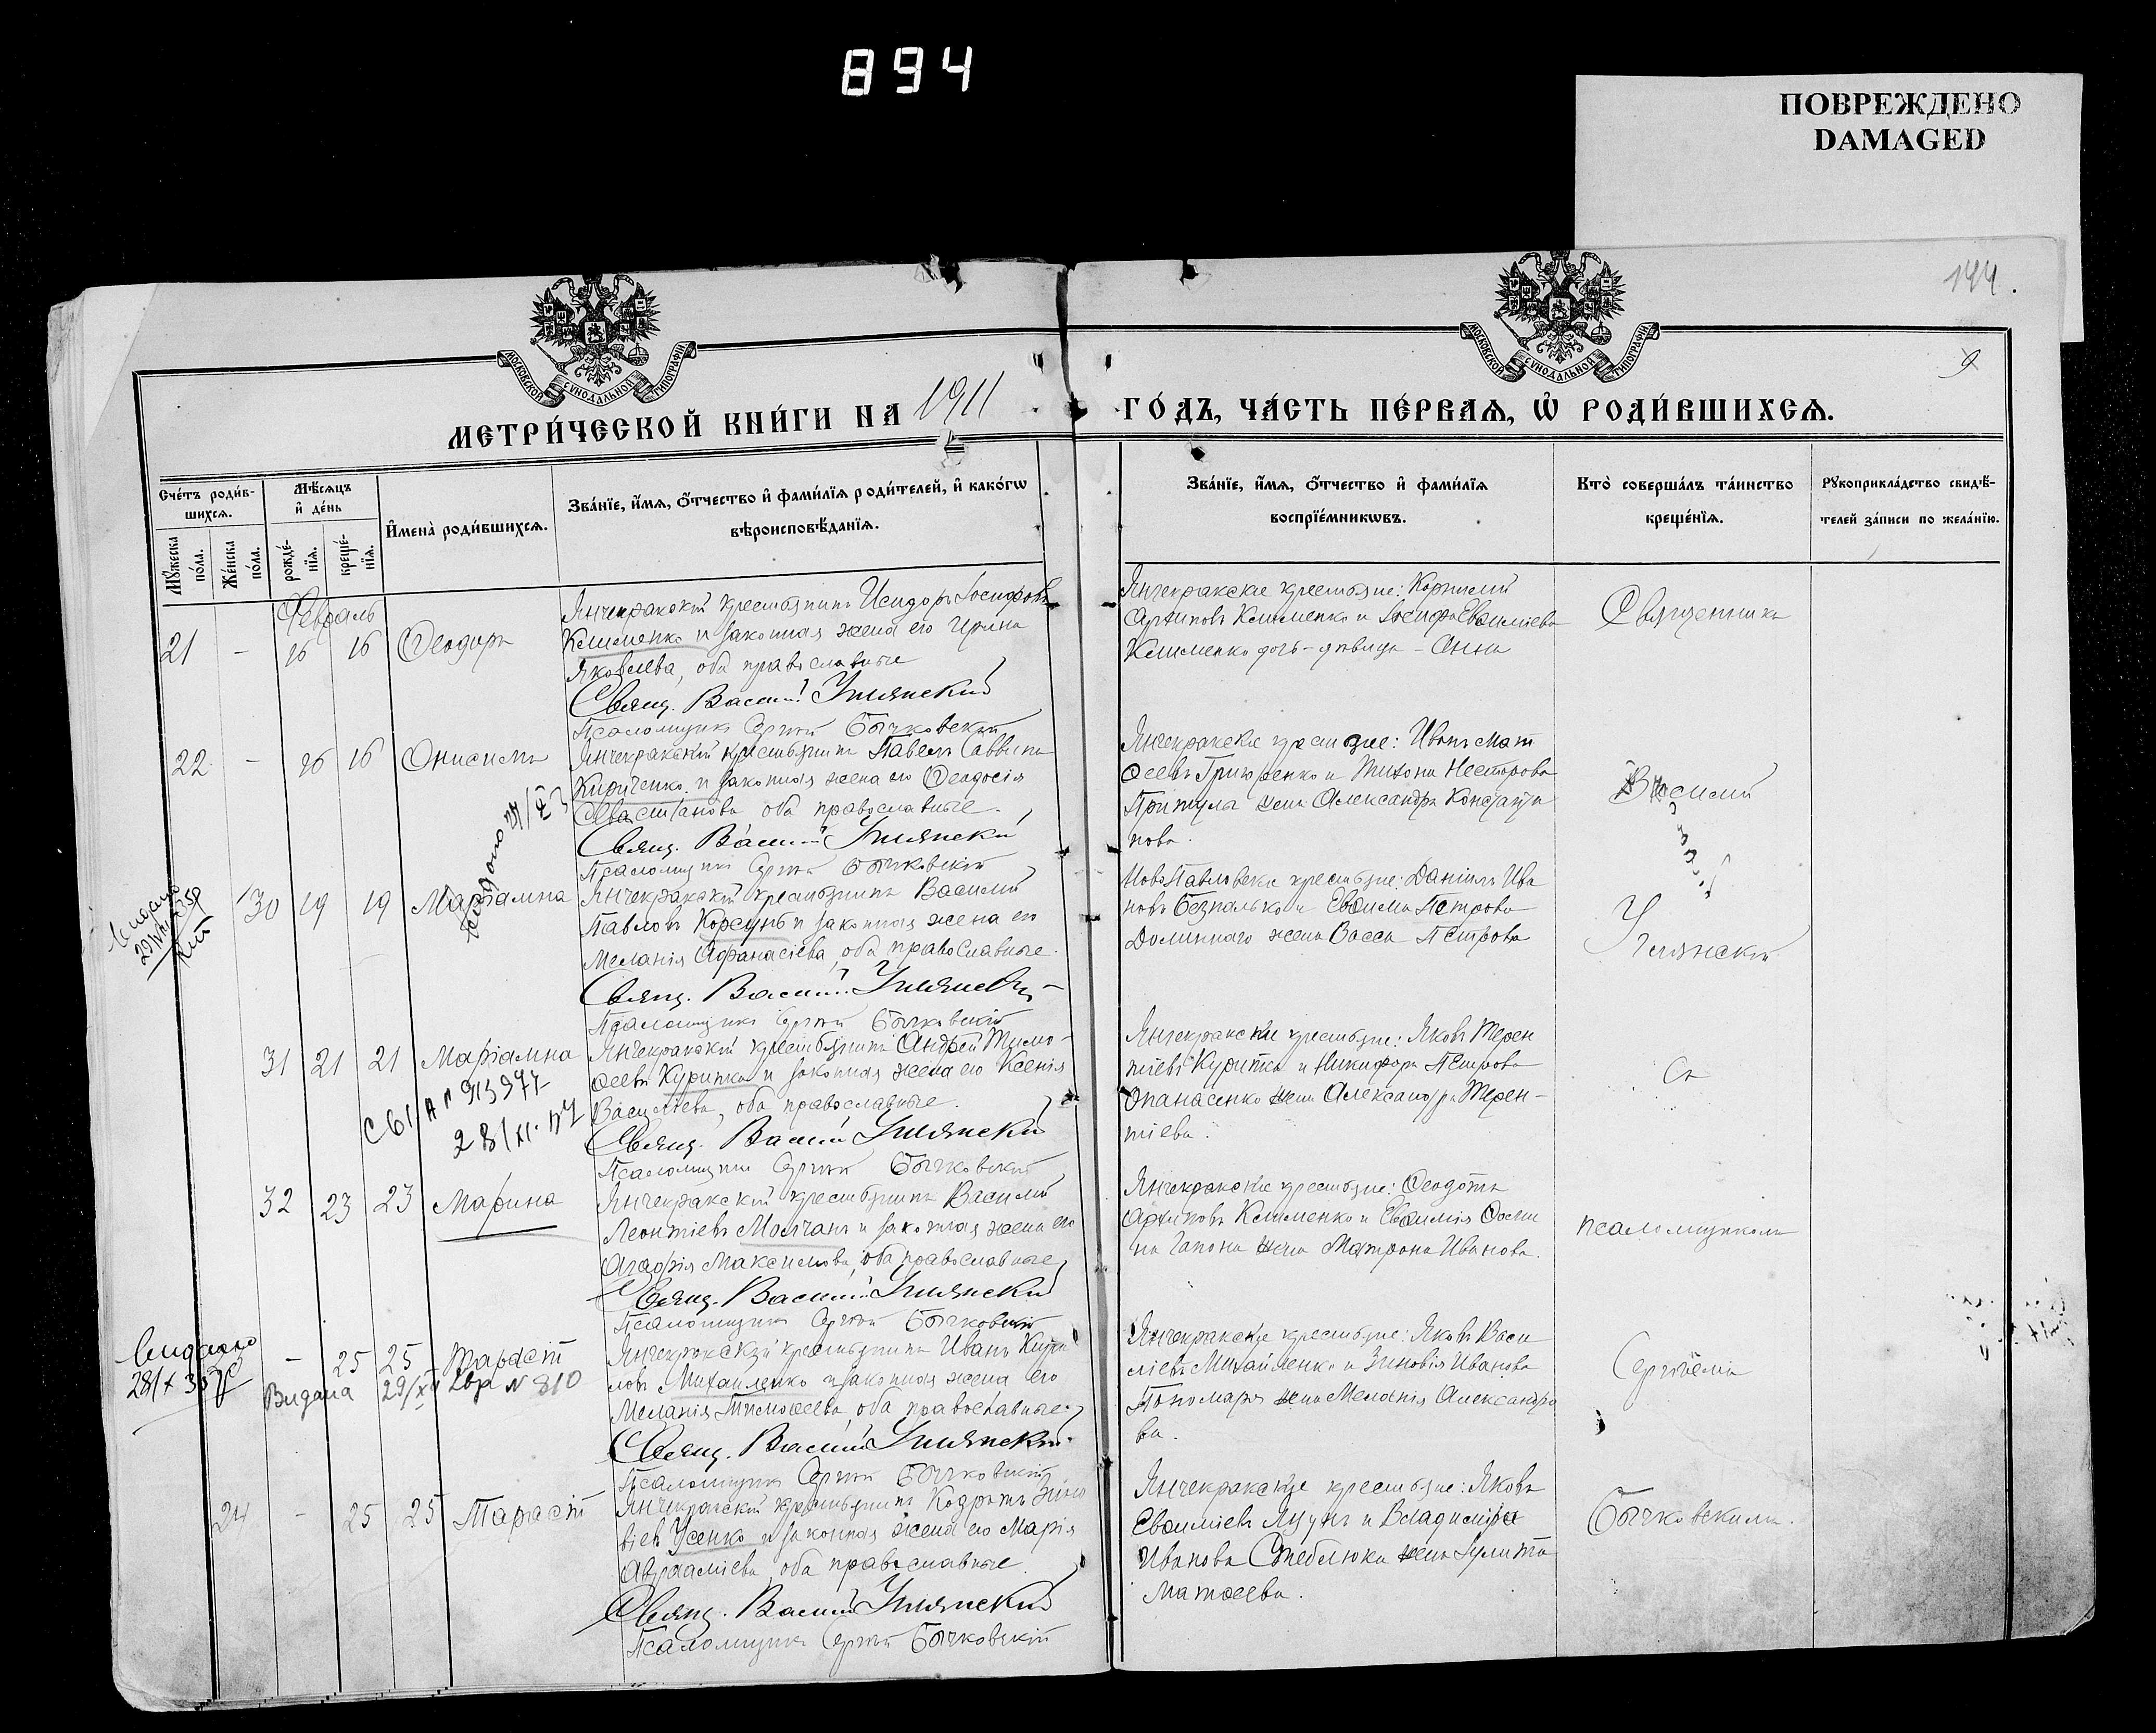 894
ПОВРЕЖДЕНО
DAMAGED
144.
9
МОСКОВСКОЙ СѴНОДАЛЬНОЙ ТИПОГРАФІИ
МОСКОВСКОЙ СѴНОДАЛЬНОЙ ТИПОГРАФІИ
МЕТРИ́ЧЕСКОЙ КНИ́ГИ НА 1911
ГО́ДЪ, ЧА́СТЬ ПЕ́РВАѦ, Ѡ҆ РОДИ́ВШИХСѦ.
Сче́тъ роди́в-
шихсѧ.
Мѣ́сѧцъ
и҆ де́нь
И҆мена̀ роди́вшихсѧ.
Зва́нїе, и҆́мѧ, ѻ҆́тчество и҆ фами́лїѧ роди́телей, и҆ како́гѡ
вѣроисповѣ́данїѧ.
Мꙋ́жеска
по́ла.
Же́нска
по́ла.
рожде́-
нїѧ.
креще́-
нїѧ.
Зва́нїе, и҆́мѧ, ѻ҆́тчество и҆ фами́лїѧ
воспрїе́мникѡвъ.
Кто̀ соверша́лъ та́инство
креще́нїѧ.
Рꙋкоприкла́дство свидѣ́-
телей за́писи по жела́нїю.
Февраль
21 - 16 16 Ѳеодоръ
Янчекракскій крестьянинъ Исидоръ Іосифовъ
Клименко и законная жена его Ирина
Яковлева, оба православные
Свящ. Василій Унлянскій
Псаломщикъ Сергій Бычковскій
Янчекракскіе крестьяне: Корнилій
Архиповъ Клименко и Іосифа Евѳиміева
Клименко дочь-дѣвица - Анна
Священникъ
22 - 16 16 Онисимъ
Янчекракскій крестьянинъ Павелъ Саввинъ
Кириченко и законная жена его Ѳеодосія
Севастіанова оба православные.
Свящ. Василій
Псаломщикъ Сергій Бычковскій
Янчекракскіе крестьяне: Иванъ Мат
ѳеевъ Григоренко и Тихона Несторова
Притула жена Александра Константи
нова.
Василій
30 19 19 Маріамна
Янчекракскій крестьянинъ Василій
Павловъ Корсунъ и законная жена его
Меланія Аѳанасіева, оба православные.
Свящ. Василій
Псаломщикъ Сергій Бычковскій
НовоПавловскіе крестьяне: Даніилъ Ива
новъ Безпалько и Евѳимія Петрова
Долиннаго жена Васса Петрова
31 21 21 Маріамна
Янчекракскій крестьянинъ Андрей Тимо-
ѳеевъ Курипка и законная жена его Ксенія
Васильева, оба православные.
Свящ. Василій
Псаломщикъ Сергій Бычковскій
Янчекракскіе крестьяне: Яковъ Терен
тіевъ Курипка и Никифора Петрова
Опанасенко жена Александра Терен-
тіева.
Съ
32 23 23 Марина
Янчекракскій крестьянинъ Василій
Леонтіевъ Молчанъ и законная жена его
Агафія Максимова, оба православные
Свящ. Василій
Псаломщикъ Сергій Бычковскій
Янчекракскіе крестьяне: Ѳеодотъ
Архиповъ Клименко и Евѳимія
Гапона жена Матрона Иванова.
псаломщикомъ
Видано
- 25 25 Тарасій
Видана 29/XII № 810
Янчекракскій крестьянинъ Иванъ Кири
ловъ Михайленко и законная жена его
Меланія Тимоѳеева, оба православные.
Свящ. Василій
Псаломщикъ Сергій Бычковскій
Янчекракскіе крестьяне: Яковъ Васи
ліевъ Михайленко и Зиновія Иванова
Пономаря жена Меланія Александро
ва.
Сергіемъ
24 - 25 25 Тарасій
Янчекракскій крестьянинъ Кодратъ Зино
віевъ Усенко и законная жена его Марія
Авраамієва, оба православные.
Свящ. Василій
Псаломщикъ Сергій Бычковскій
Янчекракскіе крестьяне: Яковъ
Евѳиміевъ Ляунъ и Владиміра
Иванова Стеблюка жена Іулитта
Матѳеева.
Бычковскимъ.